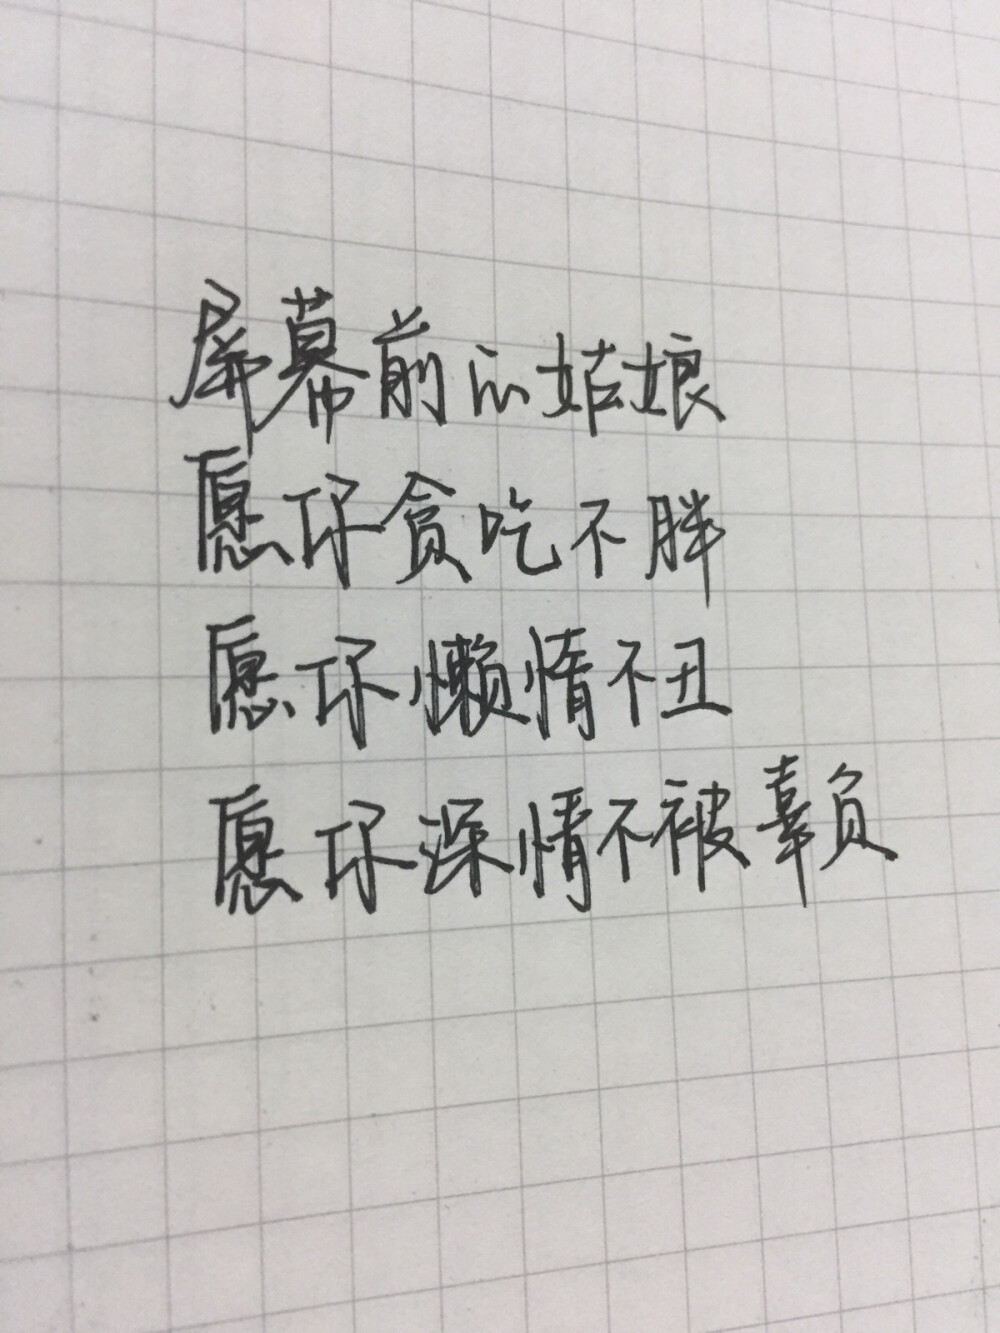 屏幕前的姑娘
愿你贪吃不胖
愿你懒惰不丑
愿你深情不被辜负